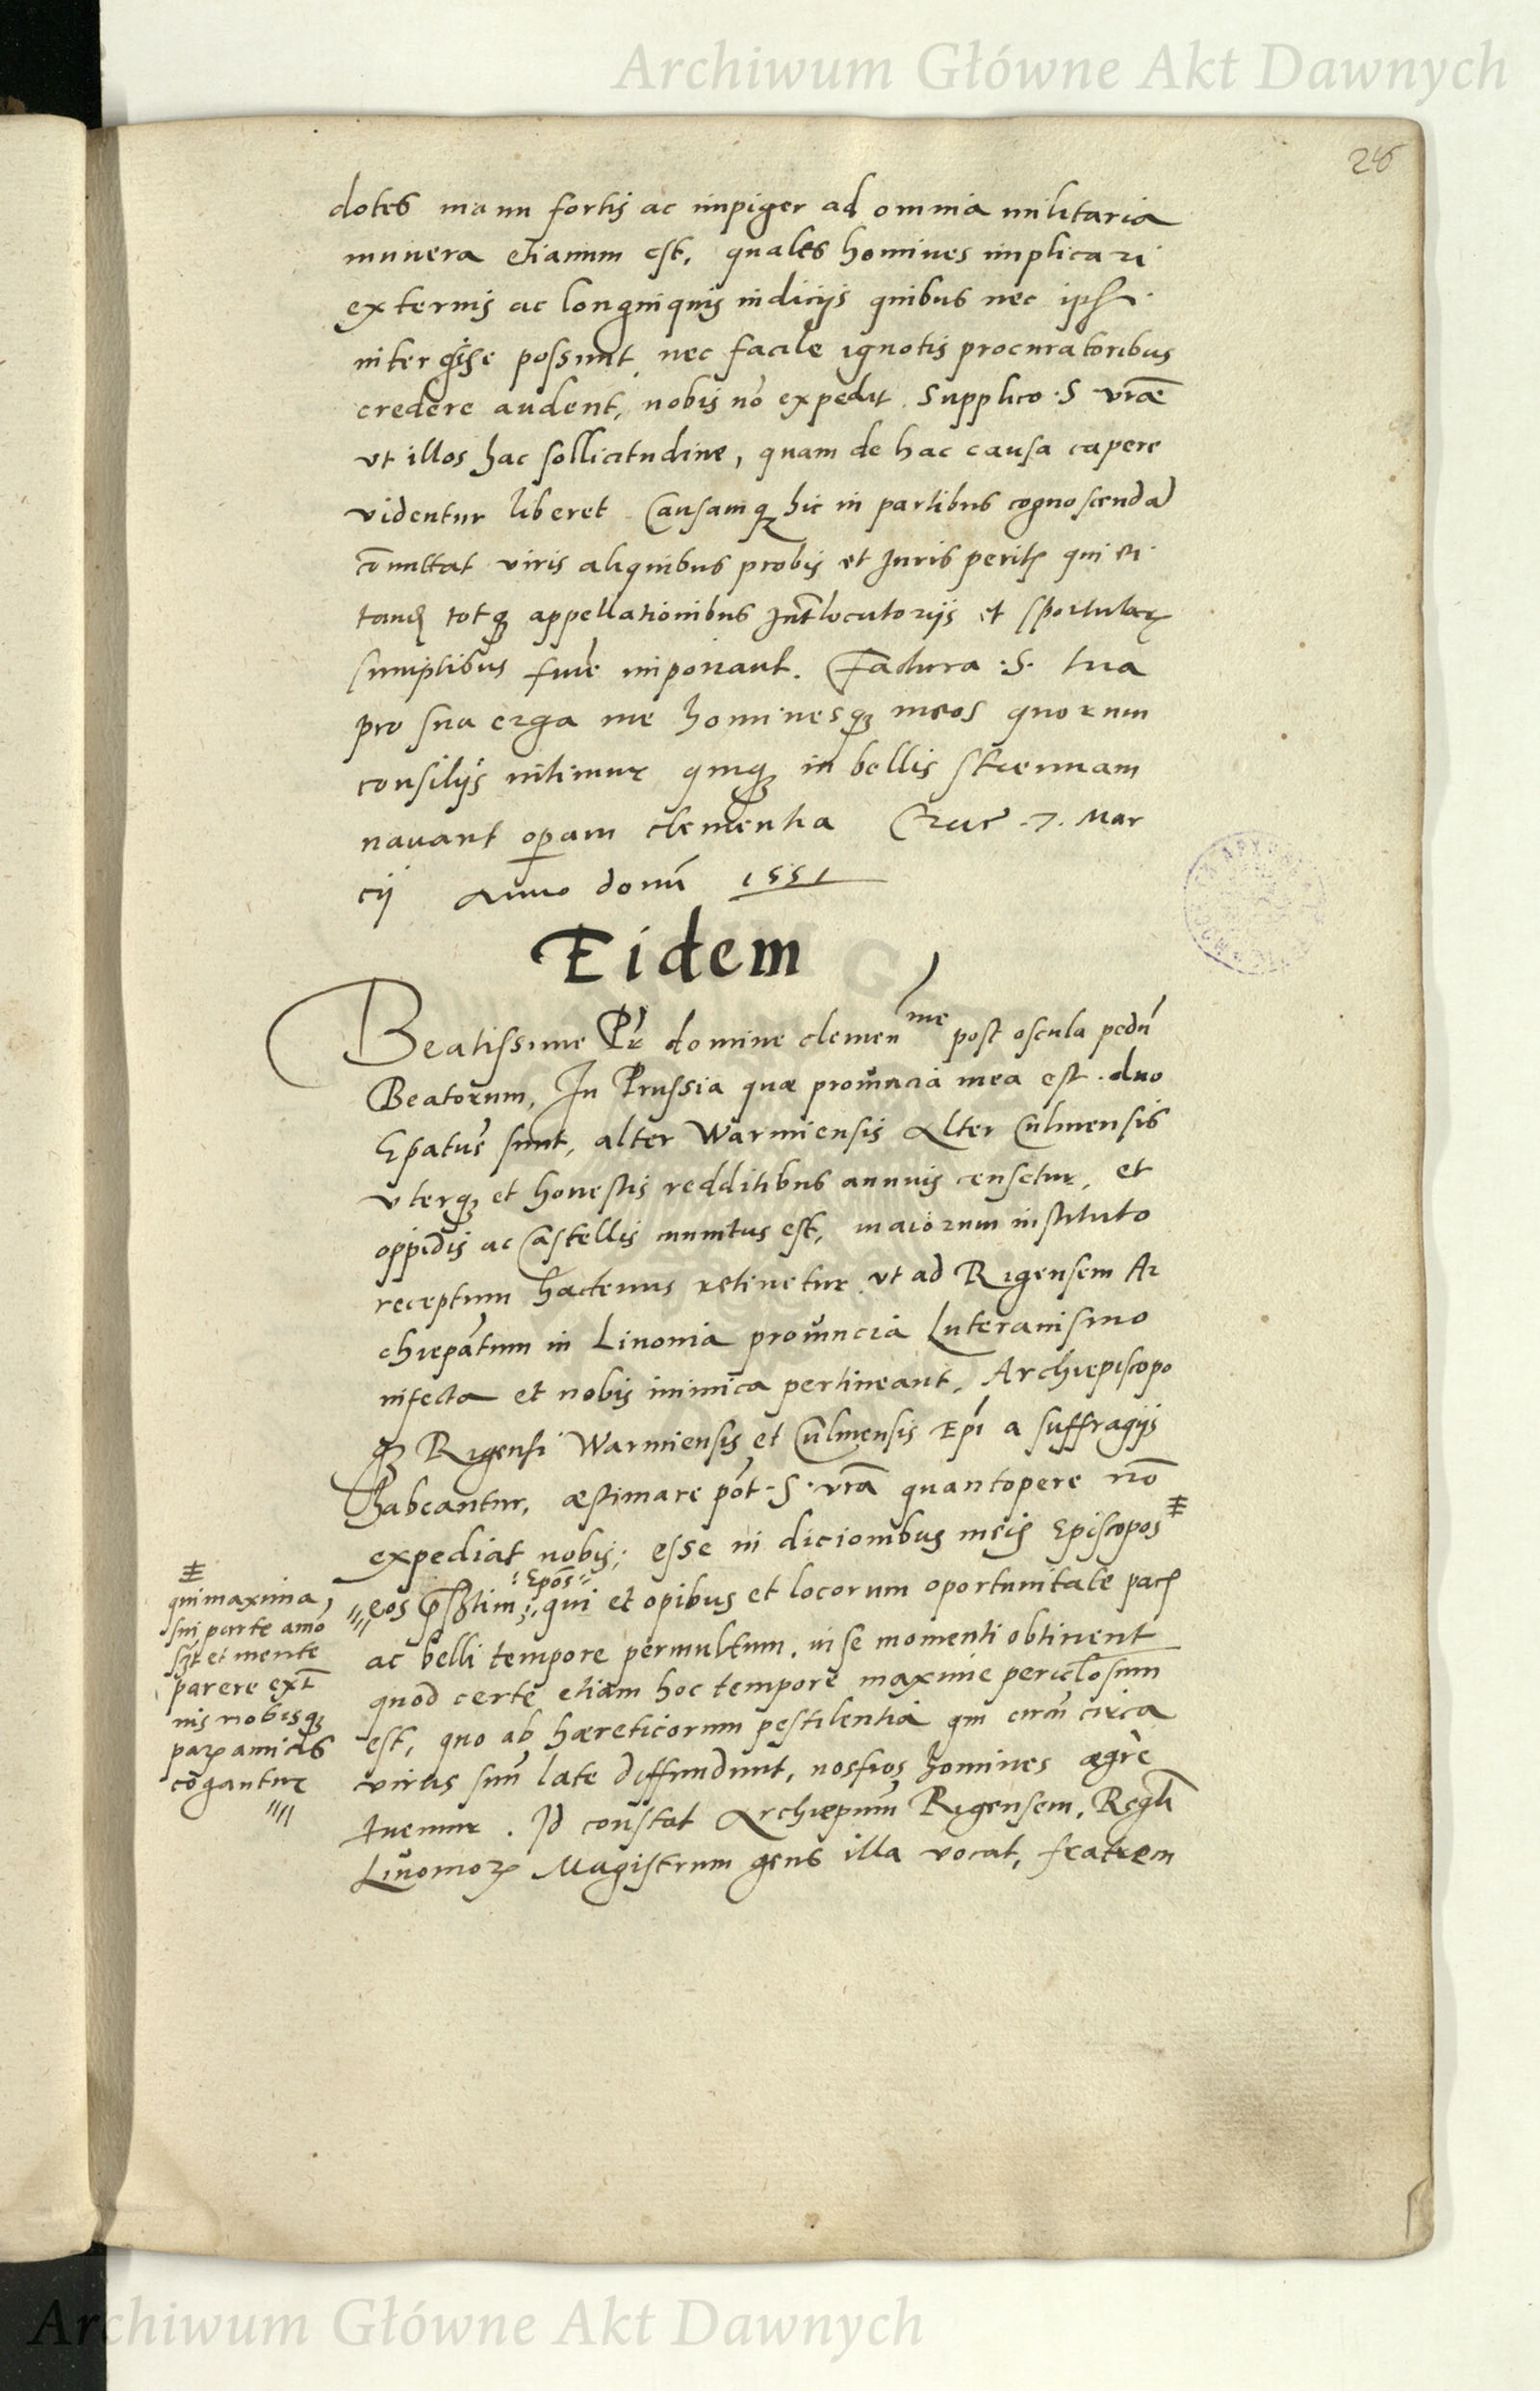 Archiwum Główne Akt Dawnych
26
dotes manu fortis ac impiger ad omnia militaria
munera etiamnum est, quales homines implicari
externis ac longinquis iudicijs quibus nec ipsi
inter esse possunt, nec facile ignotis procuratoribus
credere audent, nobis nō expedit. Supplico .S. vrae
vt illos hac sollicitudine, quam de hac causa capere
videntur liberet Causamq; hic in partibus cognoscendā
cōmittat viris aliquibus probis et Iuris peritis qui
tandē totq; appellationibus Intlocutorijs et sportularū
sumptibus finē imponant. Factura .S. tua
pro sua erga me hominesq; meos quorum
consilijs nitimur quiq; in bellis strenuam
nauant operam clementia Crac .7. Mar
cij Anno domī 1551
Eidem
Beatissime Pr domine clemenme post oscula pedū
Beatorum, In Prussia quae prouincia mea est duo
Epatus sunt, alter Warmiensis Alter Culmensis
vterq; et honestis redditibus annuis censetur, et
oppidis ac Castellis munitus est, maiorum instituto
receptum hactenus retinetur vt ad Rigensem Ar
chiepātum in Liuonia prouincia Luteranismo
infecta et nobis inimica pertineant, Archiepiscopo
q; Rigensi Warmiensis et Culmensis Epi a suffragijs
habeantur, aestimare pōt .S. vrā quantopere nō
expediat nobis; esse in dicionibus meis Episcopos ǂ
Epos
eos prsertim; qui et opibus et locorum oportunitate pacis
ac belli tempore permultum in se momenti obtinent
quod certe etiam hoc tempore maxime periclosum
est, quo ab haereticorum pestilentia qui circū circa
virus suū late diffundunt, nostros homines aegre
tuemur. Id constat Archiepum Rigensem, Reglī
Liuonorū Magistrum gens illa vocat, fratrem
ǂ
qui maxima
sui parte amō
et mente
parere ext
nis nobisq;
parū amicis
cogantur
Archiwum Główne Akt Dawnych